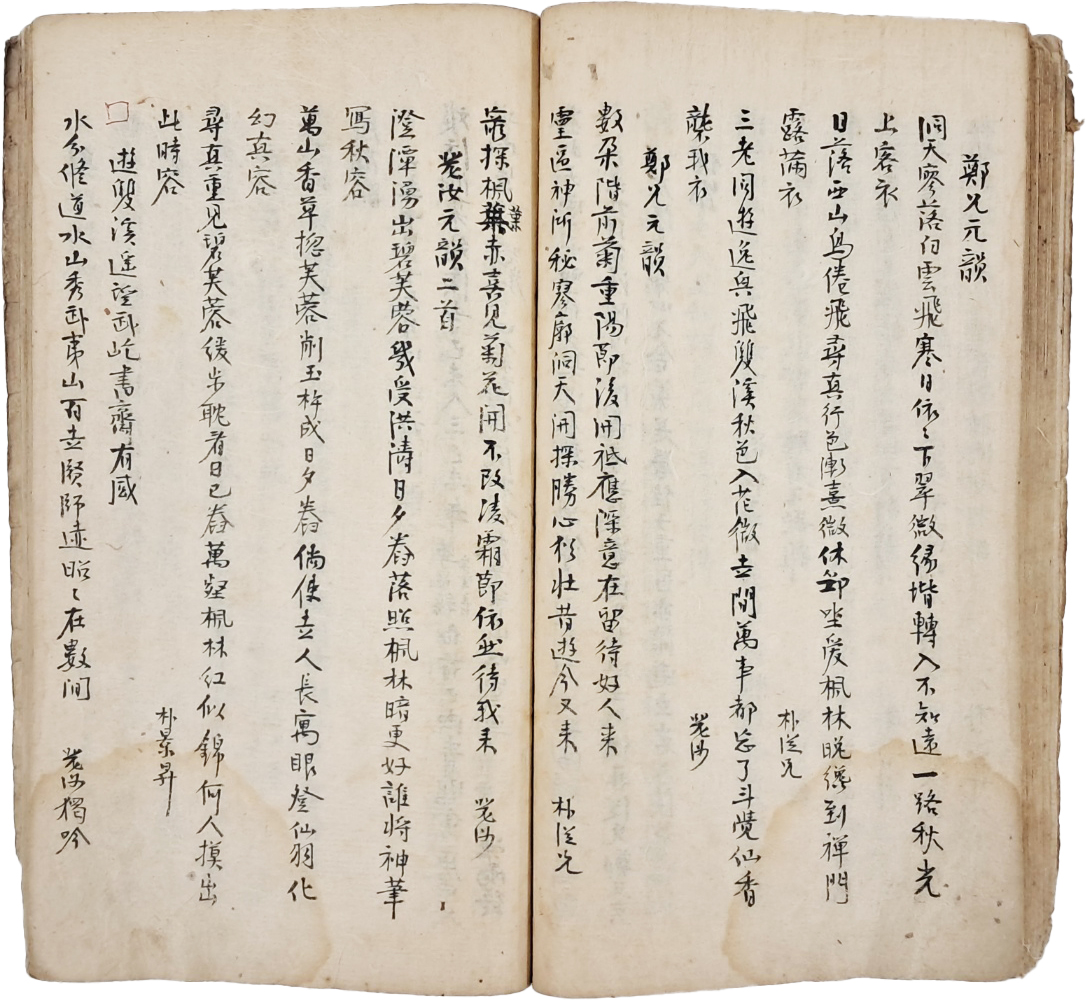 鄭兄元韻
洞天廖落白雲飛寒日依〻下翠微緣堦轉入不知遠一路秋光
上客衣
日落西山鳥倦飛尋真行色漸熹微休節坐愛楓林晚纔到禪門
露滿衣
朴從兄
三老同遊逸興飛雙溪秋色入花微立間萬事都忘了斗覺仙香
襲我衣
鄭兄元韻
數朶階前菊重陽節後開祗應深意在留待好人來
靈區神所秘寥廓洞天開探勝心猶壯昔遊今又來 朴從兄
崈探楓葉赤喜見菊花開不改凌霜節依然待我來
元韻二首
澄潭湧出碧芙蓉幾受洪濤日夕舂落照楓林暗更好誰將神筆
寫秋容
萬山香草揔芙蓉削玉杵成日夕舂倘使立人長寓眼登仙羽化
幻真容
尋真重見碧芙蓉緩步耽看日已舂萬壑楓林紅似錦何人摸出
此時容
朴景昇
遊雙溪遙望臥屹書齋有感
水分修道水山秀臥東山百立賢師遠昭〻在數間 獨吟